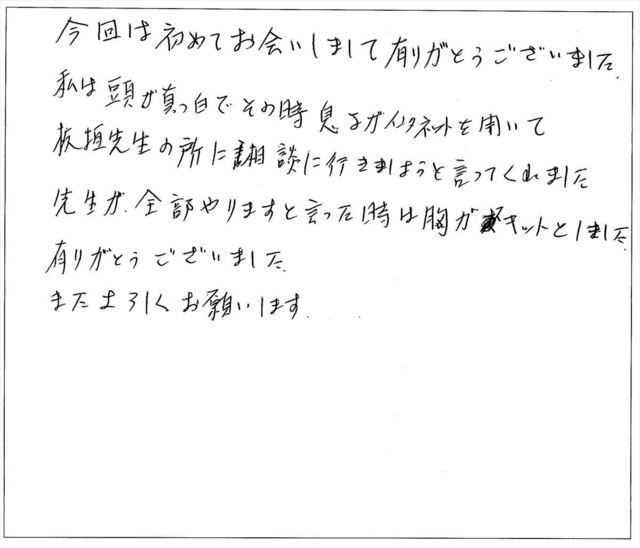 今回は初めてお会いしまして有りがとうございました
私は頭が真っ白でその時息子がインタネットを開いて
板垣先生の所に相談に行きましょうと言ってくれました
先生が全部やりますと言った時は胸がキットとしました
有りがとうございました
また よろしくお願いします